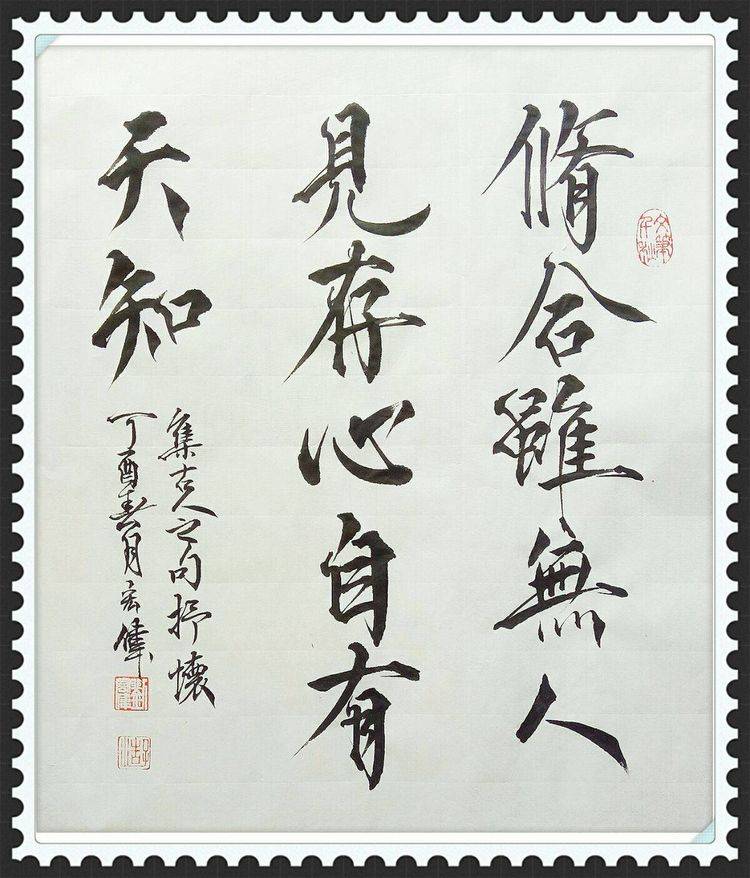 脩合雖無人
見存心自有
天知
集古人之句抒懷
丁酉春月宏偉